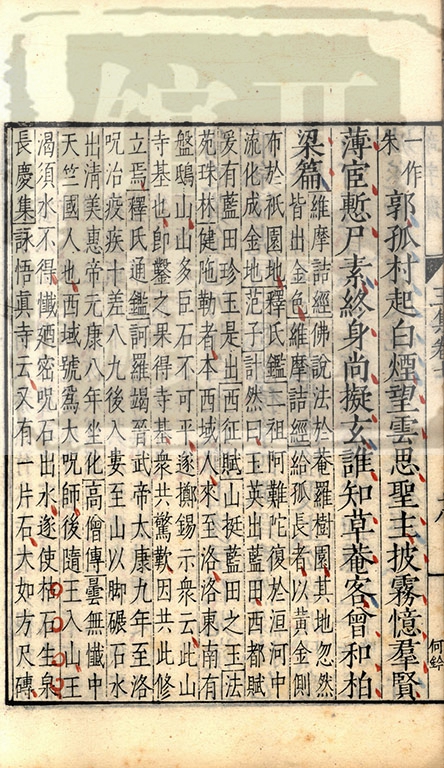 一作
朱
郭孤村起白煙望雲思聖主披霧憶羣賢
薄宦慙尸素終身尚擬玄誰知草菴客曾和柏
梁篇
維摩詰經佛說法於菴羅樹園其地忽然
皆出金色維摩詰經給孤長者以黃金側
布於祇園地釋氏鑑二祖阿難陀復於洹河中
流化成金地范子計然曰玉英出藍田西都賦
爰有藍田珍玉是出西征賦山挺藍田之玉法
苑珠林健陁勒者本西域人來至洛洛東南有
盤鵄山山多巨石不可平遂擲錫示衆云此山
寺基也即鑿之果得寺基衆共驚歎因共此修
立焉釋氏通鑑訶羅竭晉武帝太康九年至洛
呪治疫疾十差八九後入婁至山以脚碾石水
出清美惠帝元康八年坐化高僧傳曇無懺中
天竺國人也西域號爲大呪師後隨王入山王
渴須水不得懺廼密呪石出水遂使枯石生泉
長慶集詠悟真寺云又有一片石大如方尺磚